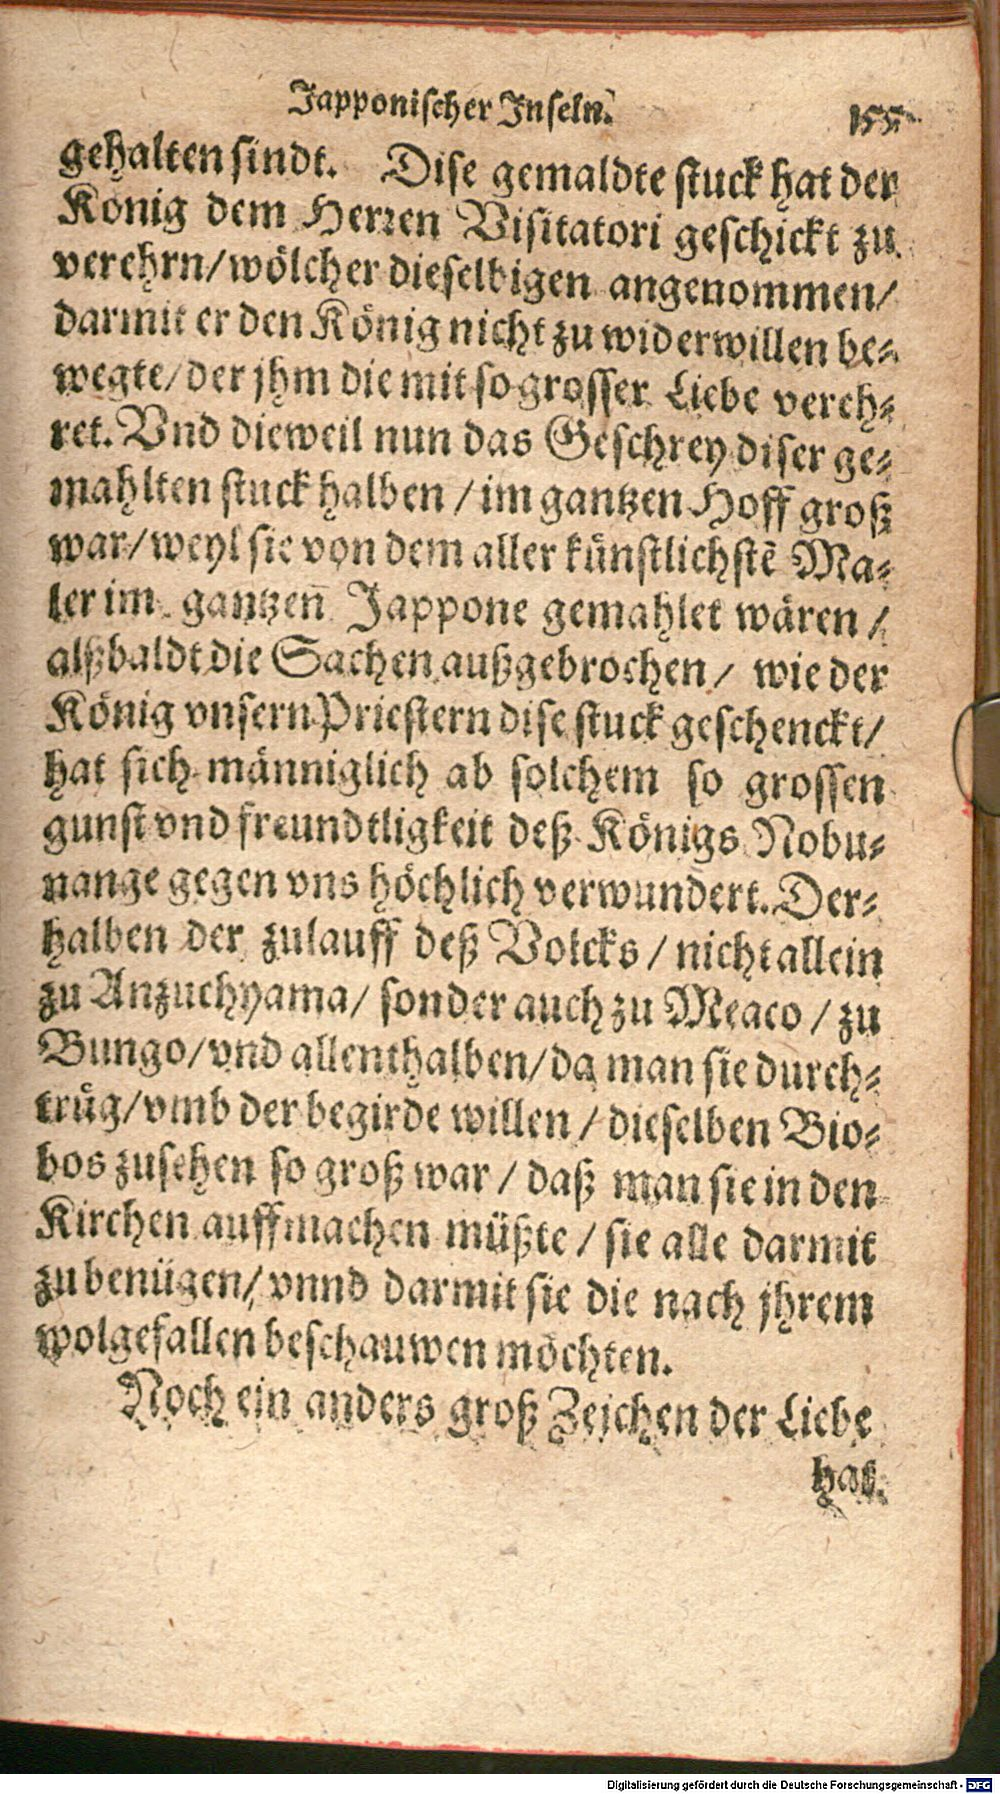 Japponischer Inseln.
155
gehalten sindt. Dise gemaldte stuck hat der
König dem Herren Visitatori geschickt zu
verehrn/ wölcher dieselbigen angenommen/
darmit er den König nicht zu widerwillen be-
wegte/ der jhm die mit so grosser Liebe vereh-
ret. Vnd dieweil nun das Geschrey diser ge-
mahlten stuck halben / im gantzen Hoff groß
war/ weyl sie von dem aller künstlichstē Ma-
ler im gantzen̄ Jappone gemahlet wären /
alßbaldt die Sachen außgebrochen/ wie der
König vnsern Priestern dise stuck geschenckt/
hat sich männiglich ab solchem so grossen
gunst vnd freundtligkeit deß Königs Nobu-
nange gegen vns höchlich verwundert. Der-
halben der zulauff deß Volcks / nicht allein
zu Anzuchyama/ sonder auch zu Meaco / zu
Bungo/ vnd allenthalben/ da man sie durch-
trüg/ vmb der begirde willen / dieselben Bio-
bos zusehen so groß war / daß man sie in den
Kirchen auffmachen müßte / sie alle darmit
zu benügen/ vnnd darmit sie die nach jhrem
wolgefallen beschauwen möchten.
Noch ein anders groß Zeichen der Liebe
hat
Digitalisierung gefördert durch die Deutsche Forschungsgemeinschaft - DFG